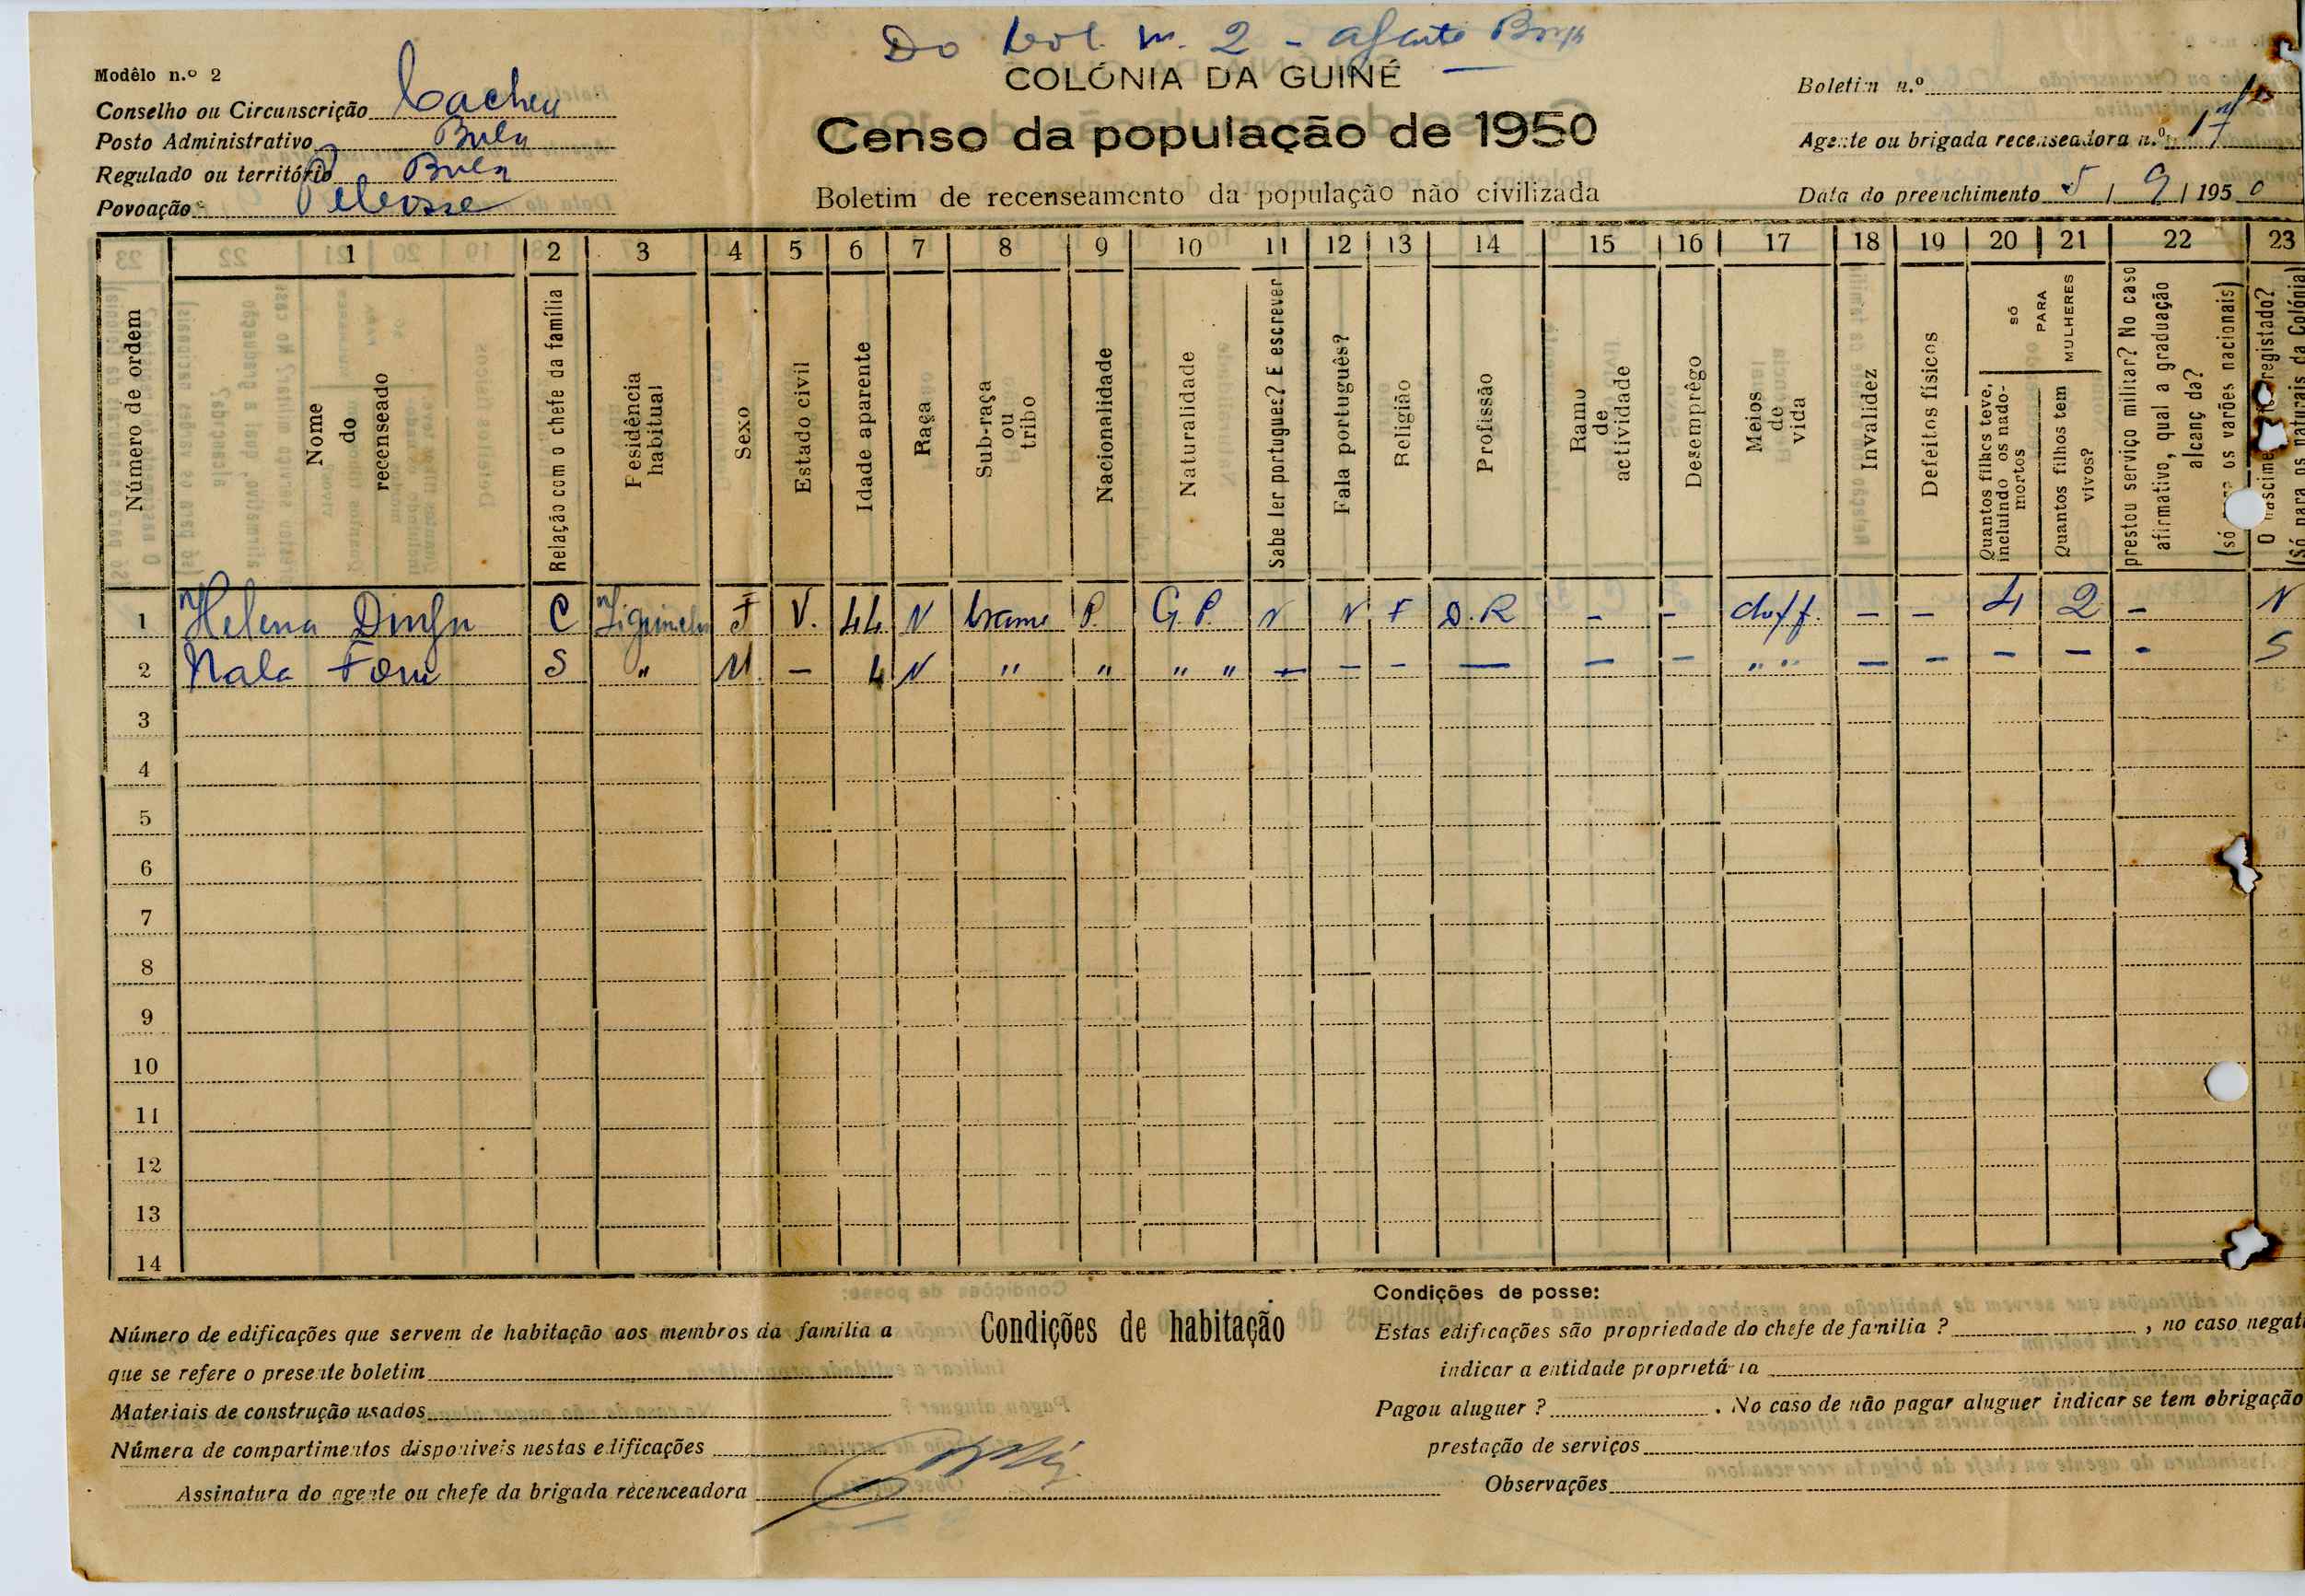 Do bol. nº 2 -
Modêlo n.º 2
COLÓNIA DA GUINÉ
Conselho ou Circunscrição Cacheu
Posto Administrativo Bula
Regulado ou território Bula
Povoação
Censo da população de 1950
Boletim de recenseamento da população não civilizada
Boletim n.º
Agente ou brigada recenseadora n.º 17
Data do preenchimento 5 / 9 / 1950
1 2 3 4 5 6 7 8 9 10 11 12 13 14 15 16 17 18 19 20 21 22 23
Número de ordem
Nome
do
recenseado
Relação com o chefe da família
Residência
habitual
Sexo
Estado civil
Idade aparente
Raça
Sub-raça
ou
tribo
Nacionalidade
Naturalidade
Sabe ler portugues? E escrever
Fala português?
Religião
Profissão
Ramo
de
actividade
Desemprêgo
Meios
de
vida
Invalidez
Defeitos físicos
SÓ
PARA
MULHERES
Quantos filhos teve,
incluindo os nado-
mortos
Quantos filhos tem
vivos?
prestou serviço militar? No caso
afirmativo, qual a graduação
alcanç da?
(só os varões nacionais)
O registado?
(Só para os naturais da Colónia)
1 Helena C F V. 44 N brame P. G.P. N N F D.R - - - - 4 2 - N
2 Nala S " M - 4 N " " " " - - - - - - " " - - - - - S
3
4
5
6
7
8
9
10
11
12
13
14
Condições de habitação
Número de edificações que servem de habitação aos membros da familia a
que se refere o presente boletim
Materiais de construção usados
Númera de compartimentos disponiveis nestas edificações
Assinatura do agente ou chefe da brigada recenceadora
Condições de posse:
Estas edificações são propriedade do chefe de familia ? , no caso negati
indicar a entidade proprietária
Pagou aluguer ? . No caso de não pagar aluguer indicar se tem obrigação
prestação de serviços
Observações